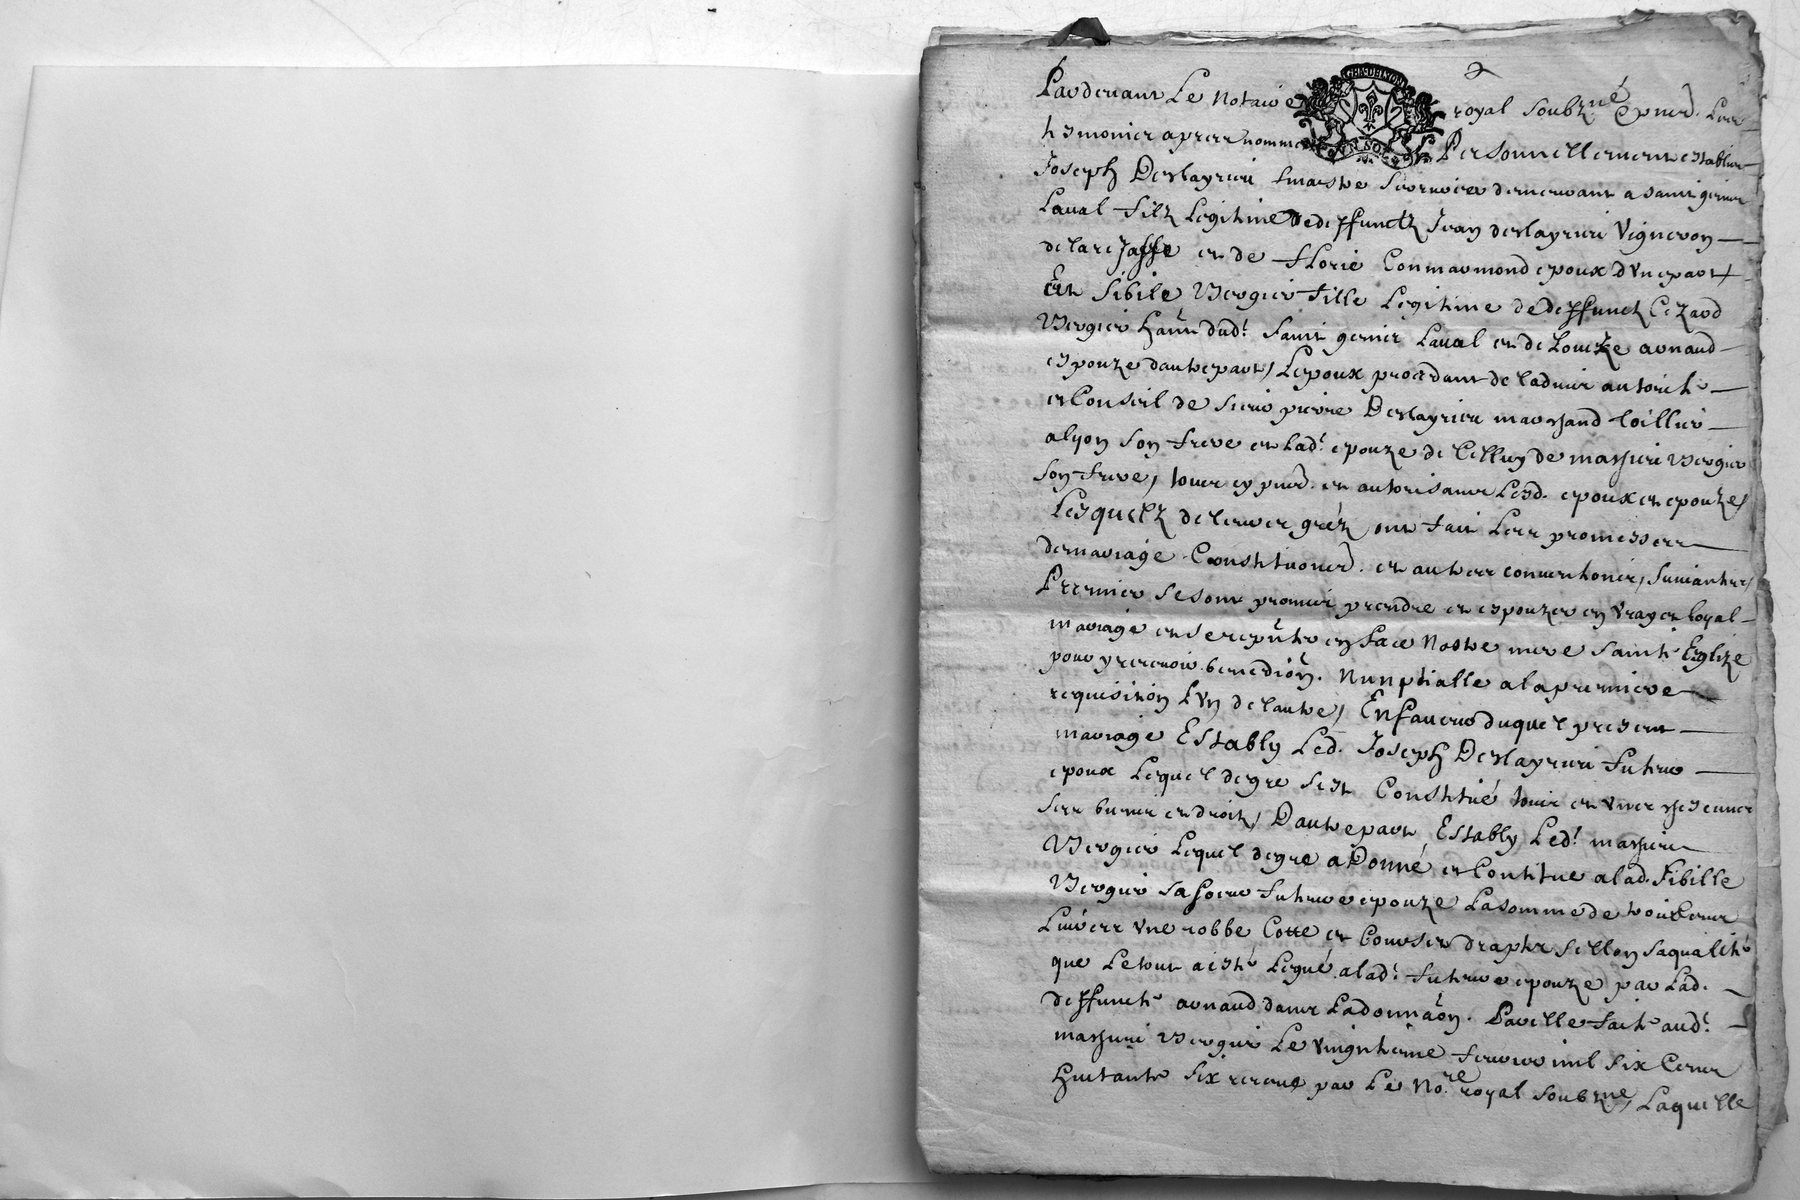 GNAL DE LYON
Pardevant Le Notaire royal soubzné & pnts. Les
tesmoings apres nommes Personnellement establis
Joseph Deslayrieu maistre serrurier demeurant a saint genis
Laval filz Legitime de deffunctz Jean deslayrieu Vigneron
de la et de florie Conmarmond epoux d'vne part
Et Sibile Vergier fille Legitime de deffunctz Cezard
Vergier dud.t Saint genis Laval et de Louize arnaud
espouze dautre part, L'epoux procedant de ladvis autorité
et Conseil de sieur pierre Deslayrieu marchand
a lyon son frere et lad.t epouze de Celluy de Vergier
son frere, tous cy pnts. et autorisants Lesd. epoux et epouze,
Lesquelz de leurs gréz ont fait Les promesses
de mariage Constitutions. et autres conventions, suivantes,
Premier se sont promis prendre et espouzer en vray et loyal
mariage et se repñter en face Nostre mere Sainte Eglize
pour y recevoir benediõn. Nunptialle a la premiere
requisition L'vn de l'autre, En faveur duquel present
mariage Estably Led. Joseph Deslayrieu futur
epoux Lequel de gre s'est Constitué tous et vns chescuns
ses biens et droits, D'autre part Estably Led.t
Vergier Lequel de gre a Donné et Constitue a lad. Sibille
Vergier sa soeur future epouze La somme de trois Cens
Livres vne robbe Cotte et sellon sa qualité
que Le tout a esté Legué a lad.t future epouze par Lad.
deffuncte arnaud dans La donnaõn. Par elle faite aud.t
Vergier Le vingtieme mil six Cens
huitante six receue par Le No.re royal soubzné, Laquelle